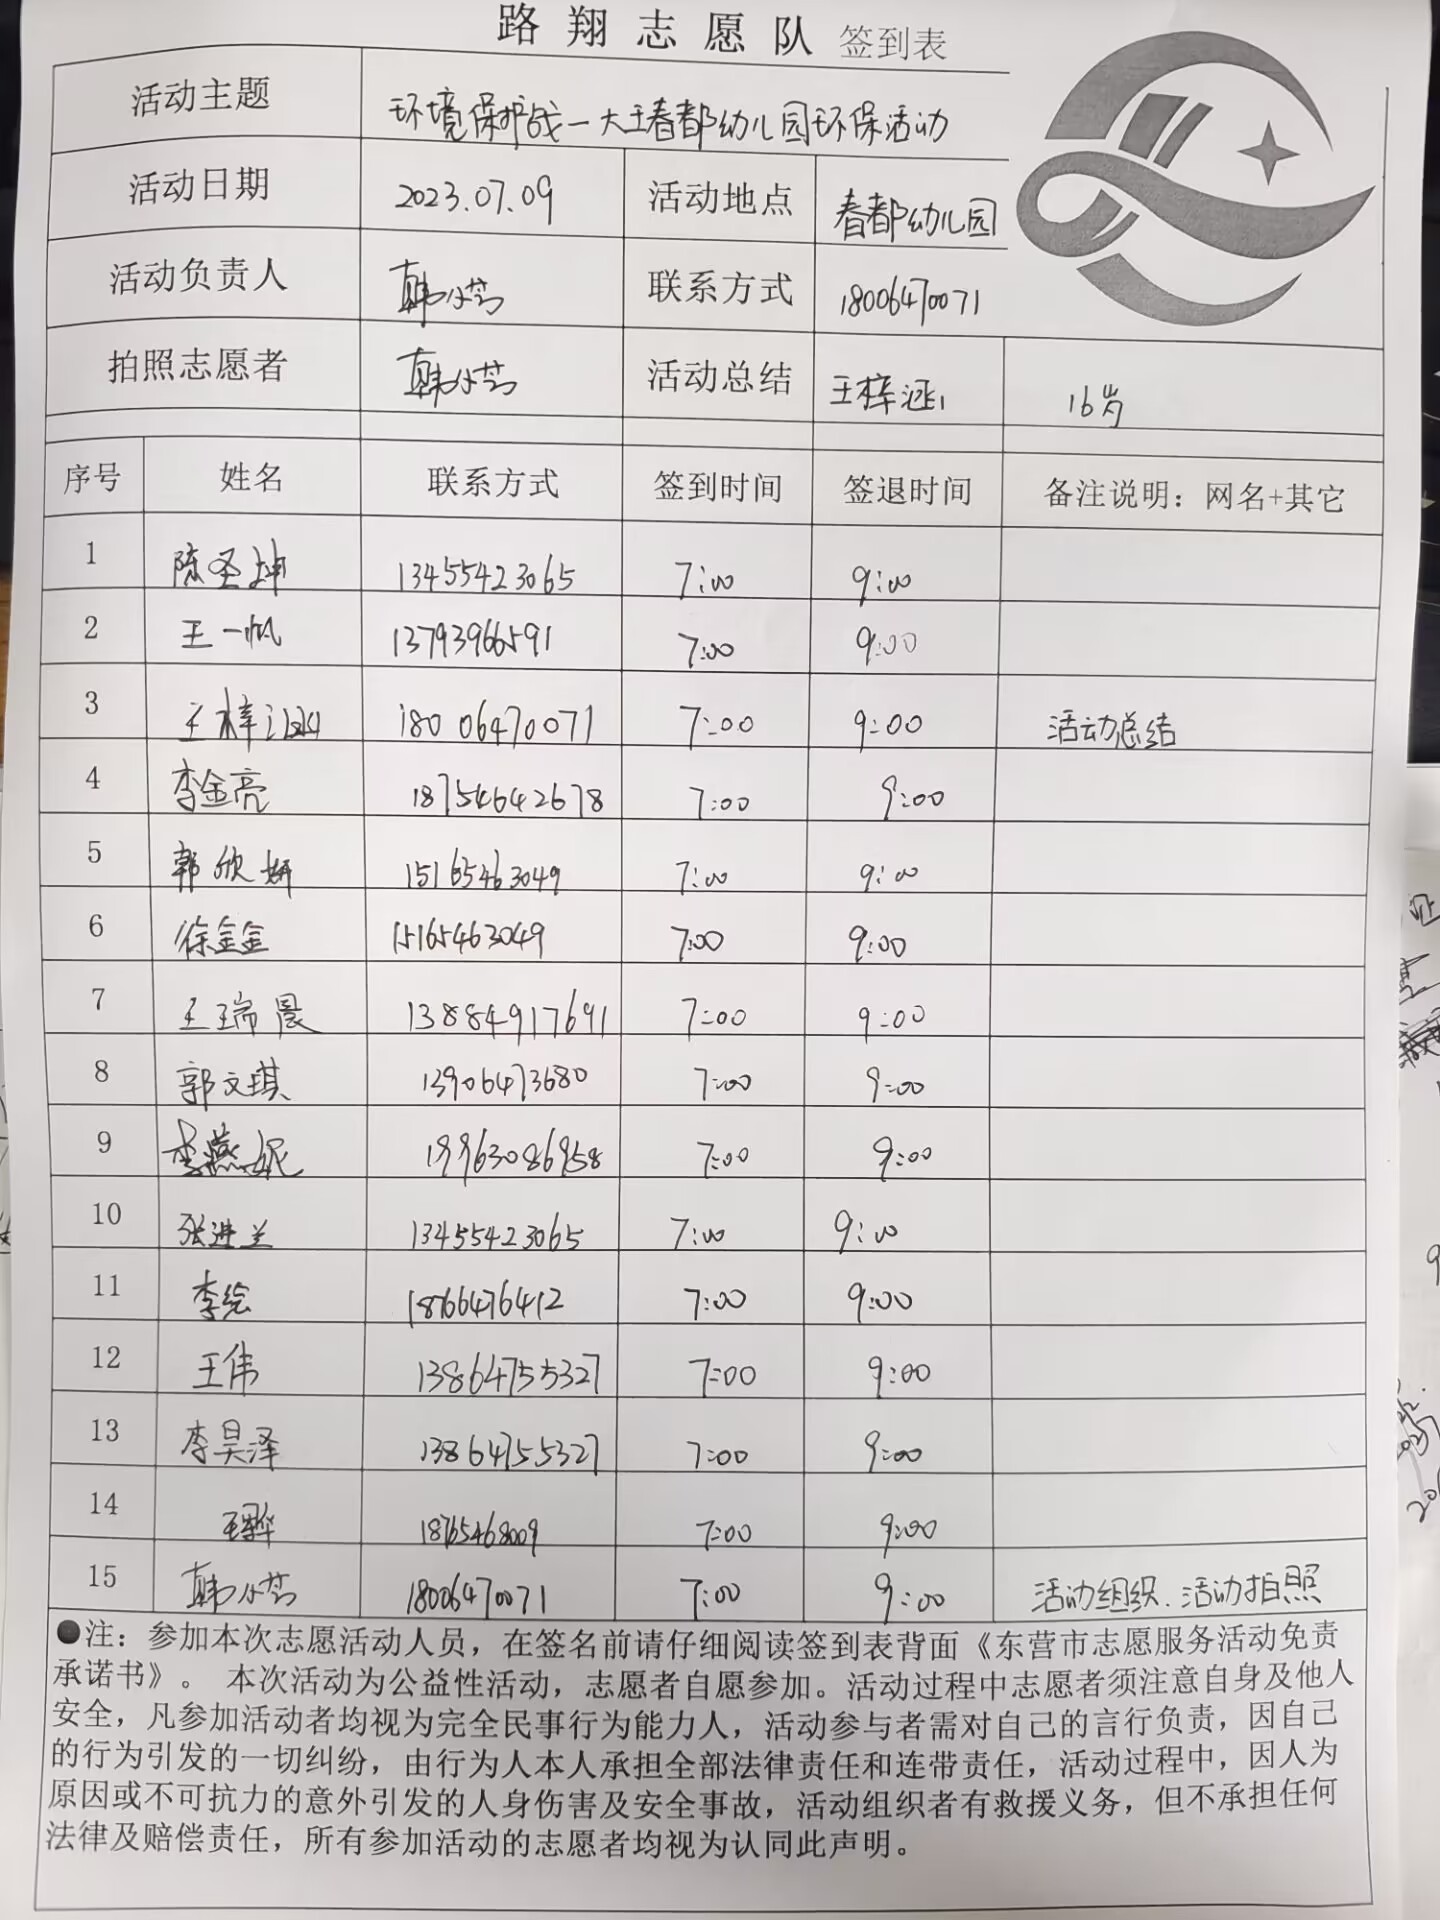 路翔志愿队 签到表
活动主题 环境保护战一大王春都幼儿园环保活动
活动日期 2023.07.09 活动地点 春都幼儿园
活动负责人 韩小芳 联系方式 18006470071
拍照志愿者 韩小芳 活动总结 王梓涵 16岁
序号 姓名 联系方式 签到时间 签退时间 备注说明：网名+其它
1 陈圣坤 13455423065 7:00 9:00
2 王一帆 13793966591 7:00 9:00
3 王梓涵 18006470071 7:00 9:00 活动总结
4 李金亮 18754642678 7:00 9:00
5 郭欣妍 15165463049 7:00 9:00
6 徐金金 15165463049 7:00 9:00
7 王瑞晨 13884917691 7:00 9:00
8 郭文琪 13906473680 7:00 9:00
9 李燕妮 19963086958 7:00 9:00
10 张进兰 13455423065 7:00 9:00
11 李绘 18766476412 7:00 9:00
12 王伟 13864755327 7:00 9:00
13 李昊泽 13864755327 7:00 9:00
14 18765468009 7:00 9:00
15 韩小芳 18006470071 7:00 9:00 活动组织.活动拍照
●注：参加本次志愿活动人员，在签名前请仔细阅读签到表背面《东营市志愿服务活动免责
承诺书》。 本次活动为公益性活动，志愿者自愿参加。活动过程中志愿者须注意自身及他人
安全，凡参加活动者均视为完全民事行为能力人，活动参与者需对自己的言行负责，因自己
的行为引发的一切纠纷，由行为人本人承担全部法律责任和连带责任，活动过程中，因人为
原因或不可抗力的意外引发的人身伤害及安全事故，活动组织者有救援义务，但不承担任何
法律及赔偿责任，所有参加活动的志愿者均视为认同此声明。